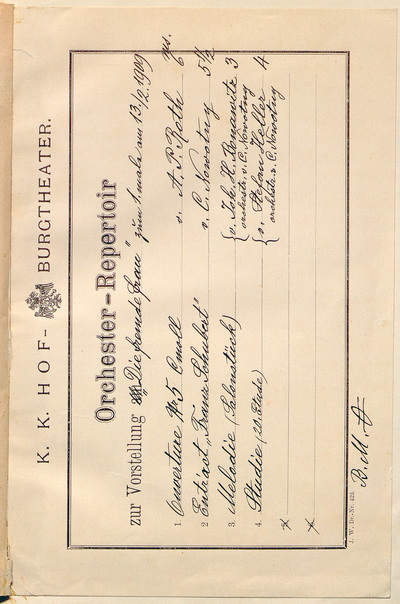 K. K. HOF- BURGTHEATER.
Orchester-Repertoir
zur Vorstellung "Die fremde Frau" zum 1. male am 13/2. 1909
1. Ouverture № 5 Cmoll v. A. P. Roth 6
2 Entract „Franz Schubert" v. C. Nowotny 5 1/2
3. Melodie (Salonstück) v. Joh. H. 3
orchestr. v. C. Nowotny
4. Studie v. Stefan Heller 4
orchestr. v. C. Nowotny
B. M. A